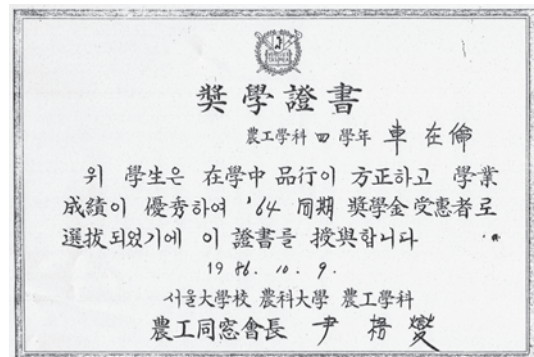 獎學證書
農工學科 四 學年 車在倫
위 學生은 在學中 品行이 方正하고 學業
成績이 優秀하여 '64 同期 獎學金 受惠者로
選拔되었기에 이 證書를 授與합니다
1986. 10. 9.
서울大學校 農科大學 農工學科
農工同窓會長 尹